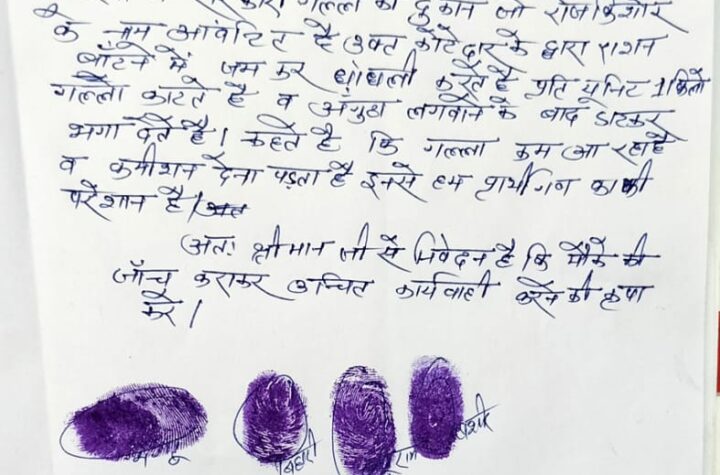 सरकारी गल्ला की दुकान जो रोजकिशोर
के नाम आवंटित है उक्त कोटेदार के द्वारा राशन
बाँटने में जम कर धांधली करते है प्रति यूनिट 1 किलो
गल्ला काटते है व अंगुठा लगवाने के बाद डाटकर
भगा देते है। कहते है कि गल्ला कम आ रहा है
व कमीशन देना पड़ता है इनसे हम प्रार्थीगन काफी
परेशान है।
अतः श्रीमान जी से निवेदन है कि मौके की
जाँच कराकर उचित कार्यवाही करने की कृपा
करे।
बिहारी
राम